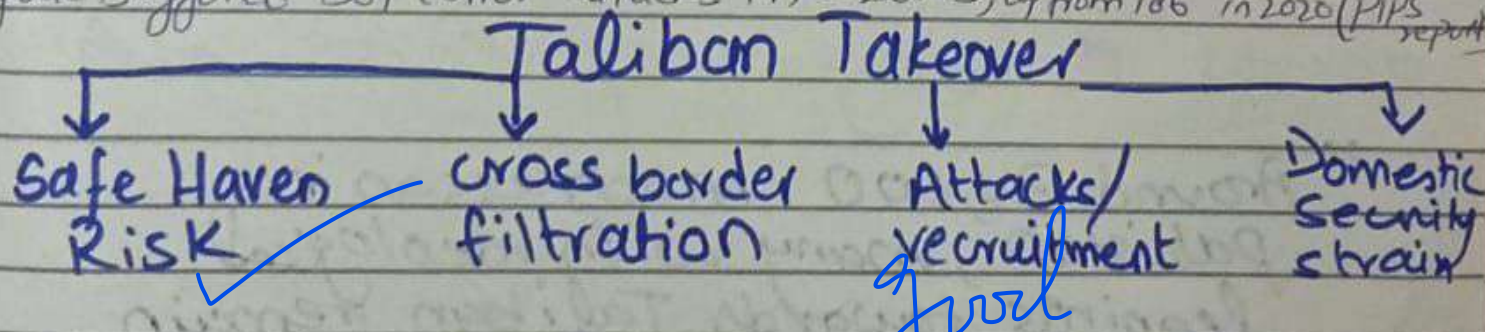 in 2020 (PIPS
report)
Taliban Takeover
Safe Haven
Risk
cross border
filtration
Attacks/
recruitment
Domestic
security
strain
Good